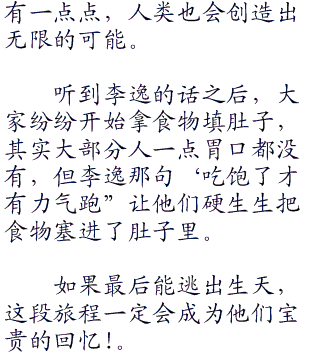 有一点点，人类也会创造出
无限的可能。
听到李逸的话之后，大
家纷纷开始拿食物填肚子，
其实大部分人一点胃口都没
有，但李逸那句‘吃饱了才
有力气跑”让他们硬生生把
食物塞进了肚子里。
如果最后能逃出生天，
这段旅程一定会成为他们宝
贵的回忆!。